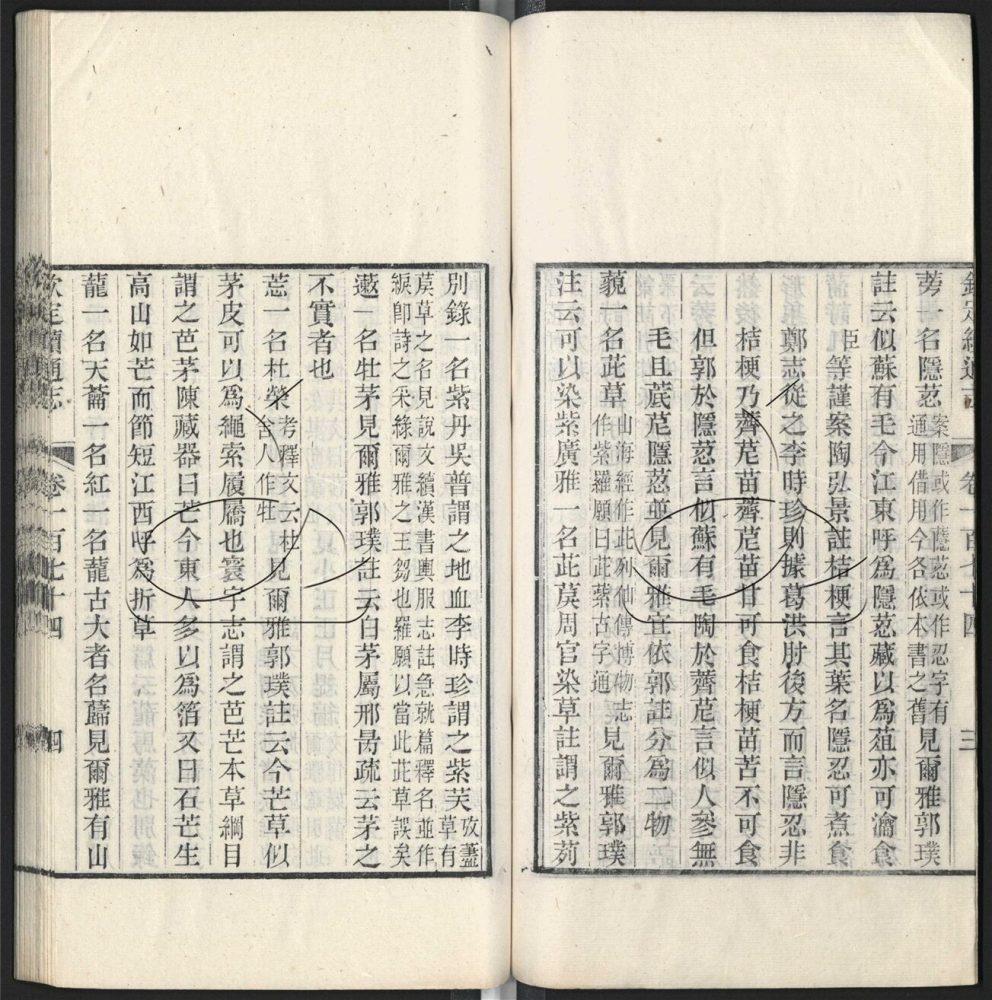 欽定續通志 卷一百七十四 三
蒡一名隱荵案隱或作蘟荵或作忍字有通用借用今各依本書之舊見爾雅郭璞
註云似蘇有毛今江東呼為隱荵藏以為葅亦可瀹食
臣等謹案陶弘景註桔梗言其葉名隱忍可煮食
鄭志從之李時珍則據葛洪肘後方而言隱忍非
桔梗乃薺苨苗薺苨苗甘可食桔梗苗苦不可食
但郭於隱荵言似蘇有毛陶於薺苨言似人參無
毛且菧苨隱荵並見爾雅宜依郭註分為二物
藐一名茈草山海經作茈列仙傳博物志作紫羅願曰茈紫古字通見爾雅郭璞
注云可以染紫廣雅一名茈䓞周官染草註謂之紫茢
別錄一名紫丹吳普謂之地血李時珍謂之紫芙攷藎草有
䓞草之名見說文續漢書輿服志註急就篇釋名並作
綟卽詩之采綠爾雅之王芻也羅願以當此茈草誤矣
薍一名牡茅見爾雅郭璞註云白茅屬邢昺疏云茅之
不實者也
莣一名杜榮考釋文云杜舍人作牡見爾雅郭璞註云今芒草似
茅皮可以為繩索履屩也寰宇志謂之芭芒本草綱目
謂之芭茅陳藏器曰芒今東人多以為箔又曰石芒生
高山如芒而節短江西呼為折草
蘢一名天蘥一名紅一名蘢古大者名蘬見爾雅有山
欽定續通志 卷一百七十四 四